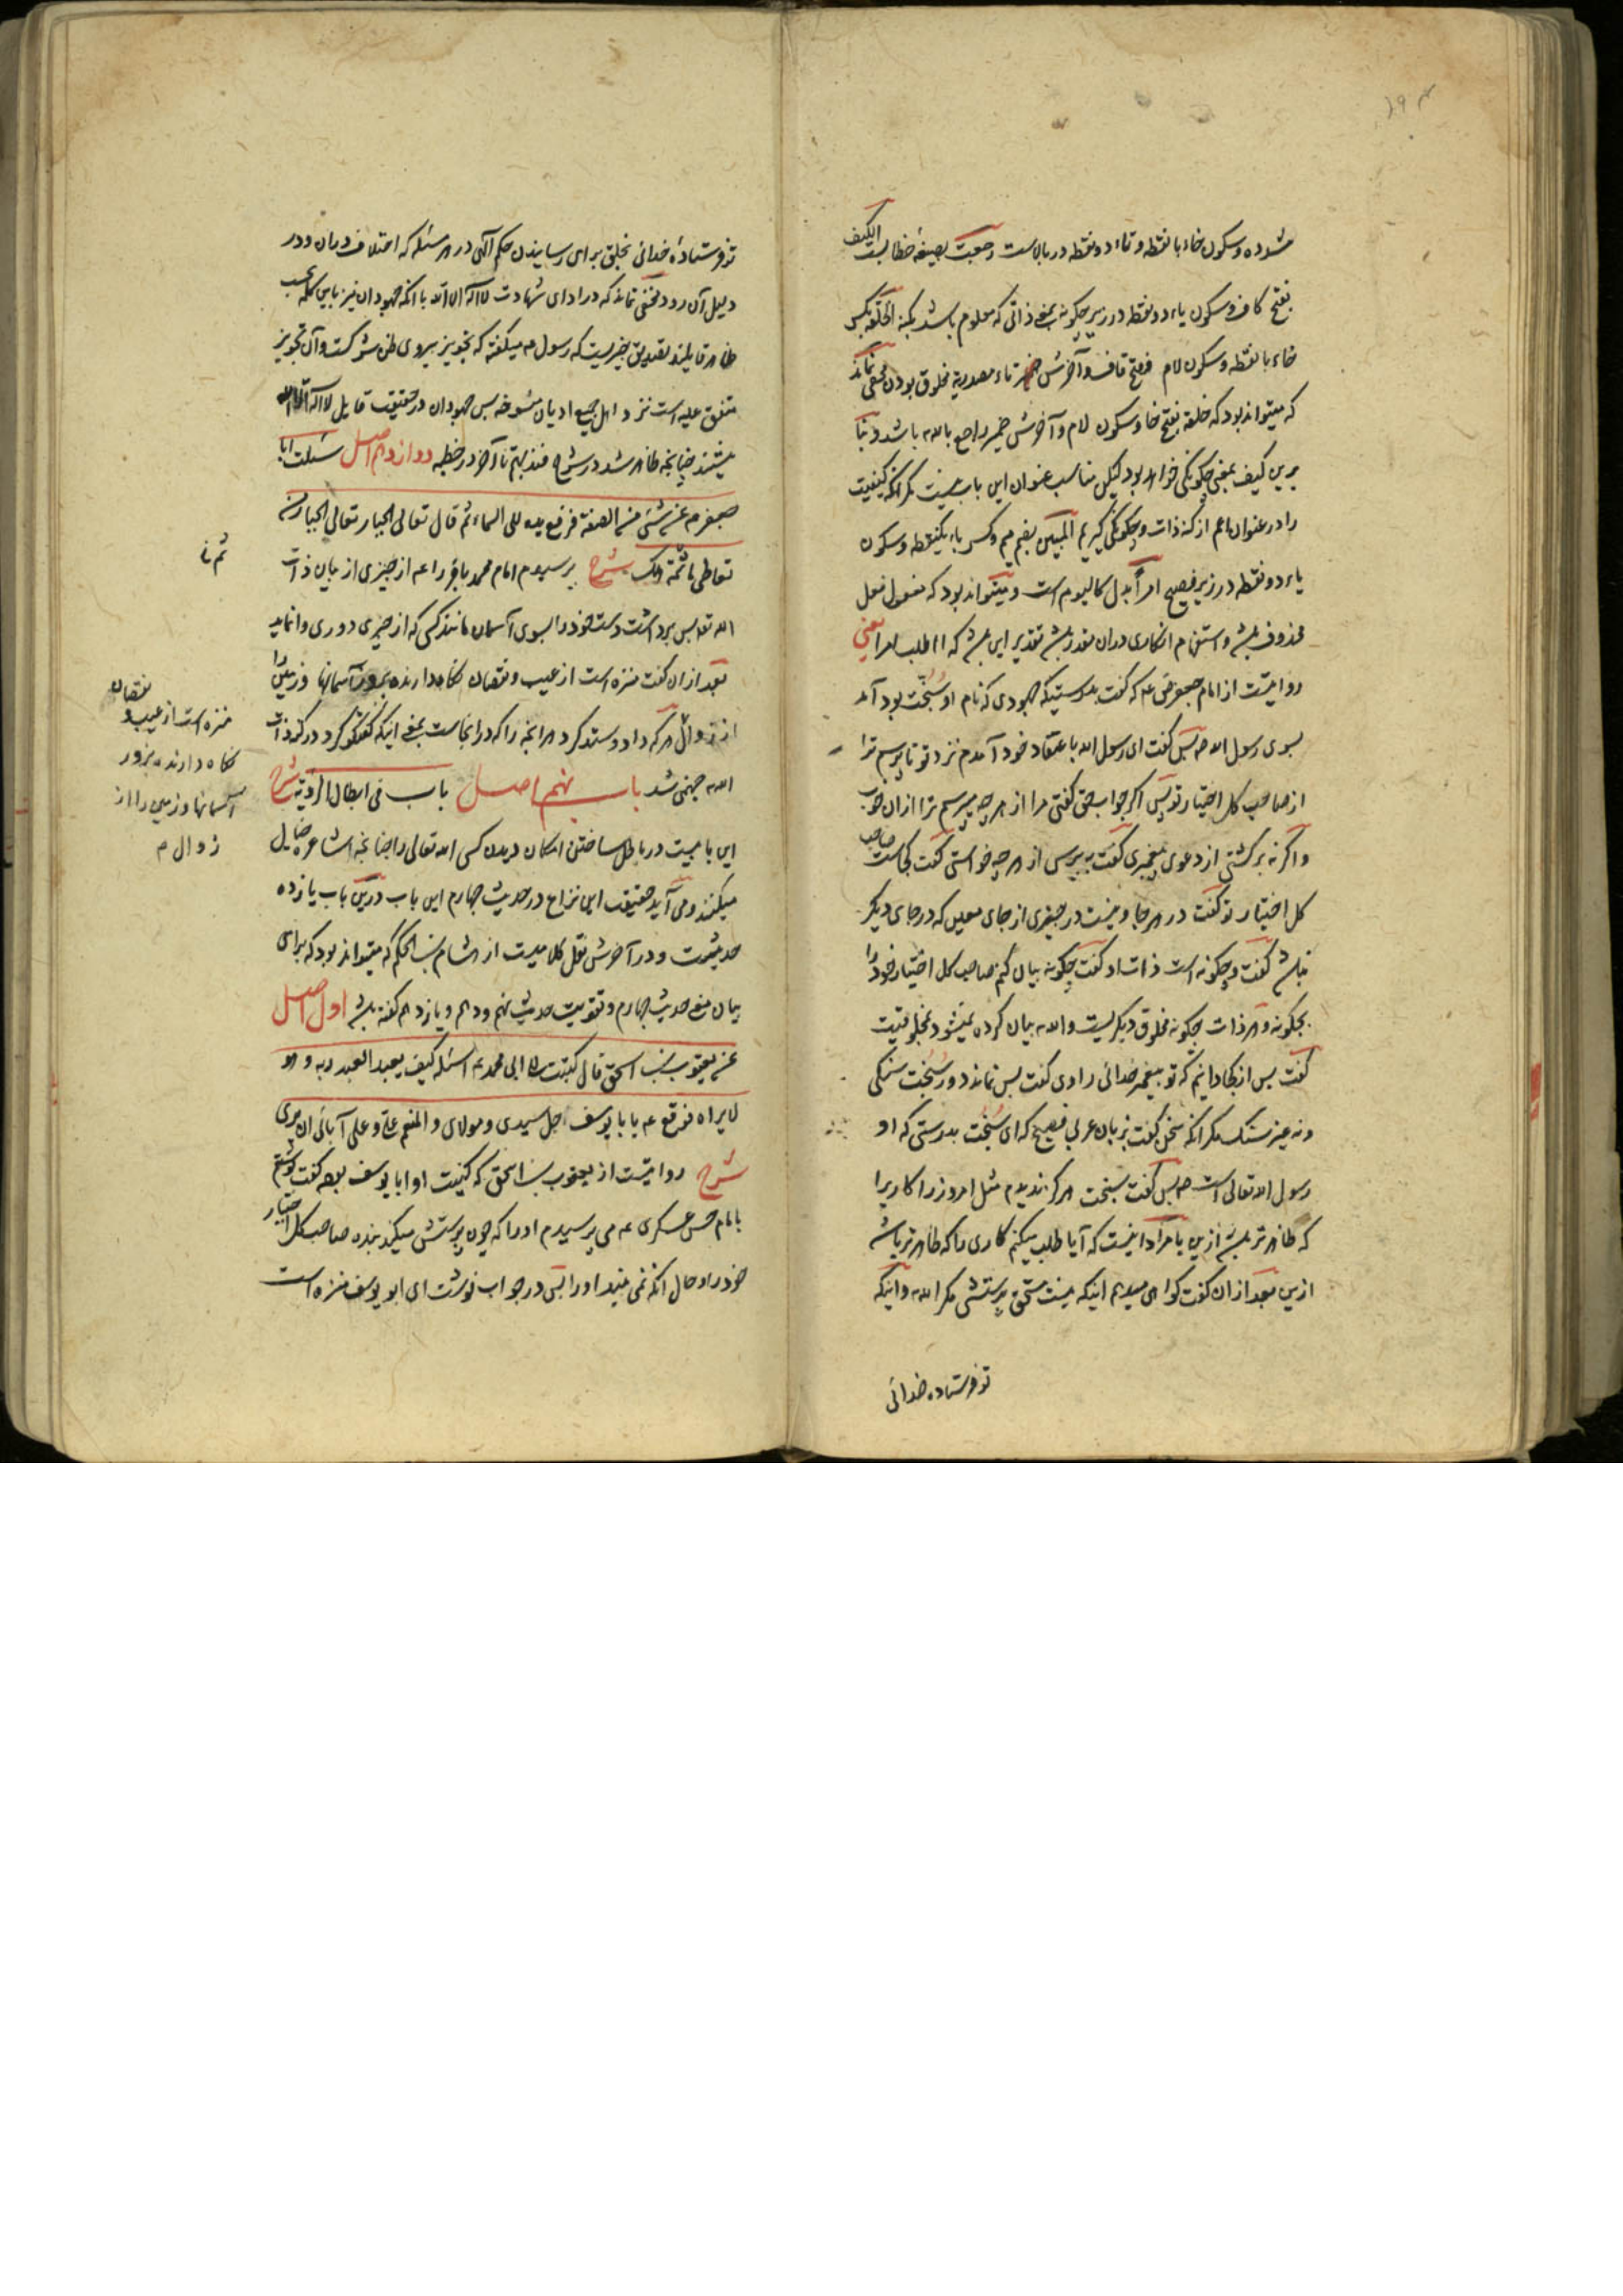 مشدده و سکون خاء با نقطه و تاء دو نقطه در بالاست رجعت بصیغهٔ خطابست الکیف
بفتح کاف و سکون یاء دو نقطه در زیر چگونه بمعنی ذاتی که معلوم باشد بکنه الخلقة بکسر
خاء با نقطه و سکون لام و فتح قاف و آخرش تاء مصدریه مخلوق بودن مخفی نماند
که میتواند بود که خلقه بفتح خا و سکون لام و آخرش ضمیر راجع بالله باشد و بنا
برین کیف بمعنی چگونگی خواهد بود لیکن مناسب عنوان این باب نیست مگر آنکه کیفیت
را در عنوان اعم از کنه ذات و چگونگی گیریم المبین بضم میم و کسر باء یکنقطه و سکون
یاء دو نقطه در زیر فصیح امراً بدل کالیوم است و میتواند بود که مفعول فعل
محذوف باشد و استفهام انکاری در ان مقدر باشد تقدیر این باشد که أ اطلب امرا یعنی
روایتست از امام جعفر ع م که گفت بدرستیکه جهودی که نام او سُبُّخت بود آمد
بسوی رسول الله ص پس گفت ای رسول الله با عتقاد خود آمدم نزد تو تا پرسم ترا
از صاحب کل اختیار تو پس اگر جواب حق گفتی مرا از هر چه میپرسم ترا از ان خوب
و اگر نه برگشتی از دعوی پیغمبری گفت بپرس از هر چه خواستی گفت کجاست صاحب
کل اختیار تو گفت در هر جا و نیست در چیزی از جای معین که در جای دیگر
نباشد گفت و چگونه است ذات او گفت چگونه بیان کنم صاحب کل اختیار خود را
بچگونه و هر ذات چگونه مخلوق دیگریست و الله بیان کرده نمیشود بمخلوقیت
گفت پس از کجا دانیم که تو پیغمبر خدائی راوی گفت پس نماند دور سُبُّخت سنگی
و نه غیر سنگ مگر آنکه سخن گفت بزبان عربی فصیح که ای سبخت بدرستی که او
رسول الله تعالی است ص پس گفت سبخت هرگز ندیدم مثل امروز را کاریرا
که ظاهرتر باشد ازین یا مراد اینست که آیا طلب میکنم کاری را که ظاهرتر باشد
ازین بعد از ان گفت گواهی میدهم اینکه نیست مستحق پرستش مگر الله و اینکه
تو فرستاده خدائی
تو فرستادهٔ خدائی بخلق برای رسانیدن حکم الهی در هر مسئله که اختلاف در ان و در
دلیل آن رود مخفی نماند که در ادای شهادت لا اله الا الله با آنکه جهودان نیز باین کلمه بحسب
ظاهر قایلند تصدیق چیزیست که رسول ص میگفته که تجویز پیروی ظن شرکست و آن تجویز
متفق علیه است نزد اهل جمیع ادیان منسوخه پس جهودان در حقیقت قایل لا اله الا الله
نیستند چنانچه ظاهر شد در شرح فندبهم تا آخر در خطبه دوازدهم اصل سئلت ابا
جعفر ع م عن شئ من الصفة فرفع یده الی السماء ثم قال تعالی الجبار تعالی الجبار من
تعاطی ما ثمّة هلک شرح پرسیدم امام محمد باقر را ع م از چیزی از بیان ذات
الله تعه پس برداشت دست خود را بسوی آسمان مانند کسی که از چیزی دوری وانماید
بعد از ان گفت منزه است از عیب و نقصان نگاه دارنده بزور آسمانها و زمین را
از زوال هر که داد و ستد کرد هر آنچه را که در آنجاست بمعنی اینکه گفتگو کرد در کنه ذات
الله جهنمی شد باب نهم اصل باب فی ابطال الرؤیة شرح
این بابیست در باطل ساختن امکان دیدن کسی الله تعالی را چنانچه اشاعره خیال
میکنند و می آید حقیقت این نزاع در حدیث چهارم این باب درین باب یازده
حدیثست و در آخرش نقل کلامیست از هشام بن الحکم که میتواند بود که برای
بیان معنی حدیث چهارم و تقویت حدیث نهم و دهم و یازدهم گفته باشد اول اصل
عن یعقوب بن اسحق قال کتبت الی ابی محمد ع م اسئله کیف یعبد العبد ربه و هو
لا یراه فوقع ع م یا با یوسف جل سیدی و مولای و المنعم علیّ و علی آبائی ان یری
شرح روایتست از یعقوب بن اسحق که کنیت او ابا یوسف بوده گفت نوشتم
بامام حسن عسکری ع م می پرسیدم او را که چون پرستش میکند بنده صاحب کل اختیار
خود را و حال آنکه نمی بیند او را پس در جواب نوشت ای ابو یوسف منزه است
ثم نا
نقصان
منزه است از عیب و
نگاه دارنده بزور
آسمانها و زمین را از
زوال م